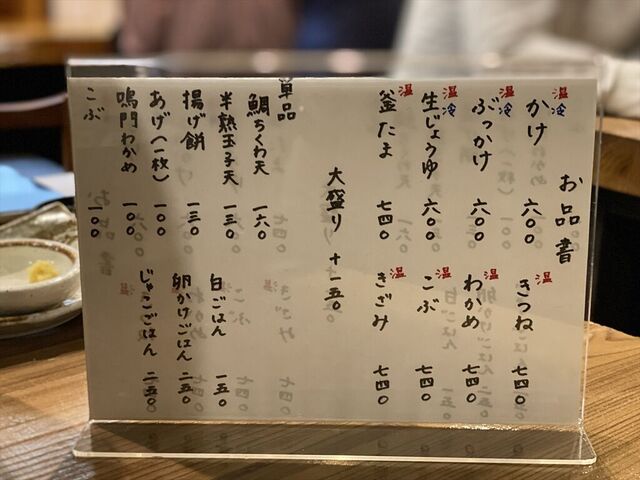 お品書
温冷 かけ 六〇〇
温冷 ぶっかけ 六〇〇
温冷 生じょうゆ 六〇〇
温 釜たま 七四〇
温 きつね 七四〇
温 わかめ 七四〇
温 こぶ 七四〇
温 きざみ 七四〇
大盛り +一五〇
単品
鯛ちくわ天 一六〇
半熟玉子天 一三〇
揚げ餅 一三〇
あげ(一枚) 一〇〇
鳴門わかめ 一〇〇
こぶ 一〇〇
白ごはん 一五〇
卵かけごはん 二五〇
じゃこごはん 二五〇